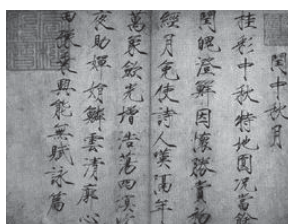 閏中秋月
桂彩中秋特地圓況當餘
閏魄澄鮮因懷勝賞初
經月免使詩人歎隔年
萬象斂光增浩蕩四溟收
夜助嬋娟鱗雲清廓心
田豫乘興能無賦詠篇